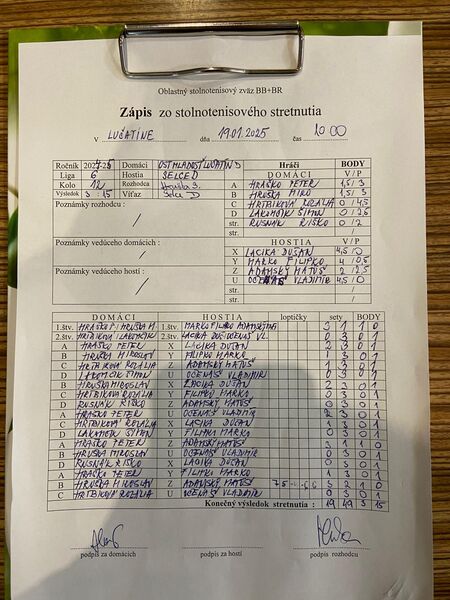 Oblastný stolnotenisový zväz BB+BR
Zápis zo stolnotenisového stretnutia
V LUČATÍNE dňa 19.01.2025 čas 10 00
Ročník Domáci
Liga 6 Hostia SELCE D
Kolo 12 Rozhodca
Výsledok 3 : 15 Víťaz Selce D
Hráči BODY
DOMÁCI V/P
A HRAŠKO PETER 1,5/3
B HRUŠKA MIRO 1,5/3
C HRTBIKOVÁ ROZÁLIA 0/4,5
D LAKOMČÍK ŠIMON 0/2,5
str. RUSNÁK RIŠKO 0/2
str.
Poznámky rozhodcu :
/
Poznámky vedúceho domácich :
/
Poznámky vedúceho hostí :
/
HOSTIA V/P
X LACIKA DUŠAN 4,5/0
Y MARKO FILIPKO 4/0,5
Z ADAMSKÝ MATÚŠ 2/2,5
U OCENÁŠ VLADIMÍR 4,5/0
str. /
str. /
DOMÁCI HOSTIA loptičky sety BODY
1.štv. HRAŠKO P. HRUŠKA M. 1.štv. 3 1 1 0
2.štv. 2.štv. 0 3 0 1
A HRAŠKO PETER X LACIKA DUŠAN 2 3 0 1
B HRUŠKA MIROSLAV Y FILIPKO MARKO 1 3 0 1
C HRTBIKOVÁ ROZÁLIA Z ADAMSKÝ MATÚŠ 1 3 0 1
D LAKOMČÍK ŠIMON U OCENÁŠ VLADIMÍR 0 3 0 1
B HRUŠKA MIROSLAV X LACIKA DUŠAN 2 3 0 1
C HRTBIKOVÁ ROZÁLIA Y FILIPKO MARKO 0 3 0 1
D RUSNÁK RIŠKO Z ADAMSKÝ MATÚŠ 0 3 0 1
A HRAŠKO PETER U OCENÁŠ VLADIMÍR 2 3 0 1
C HRTBIKOVÁ ROZÁLIA X LACIKA DUŠAN 0 3 0 1
D LAKOMČÍK ŠIMON Y FILIPKO MARKO 0 3 0 1
A HRAŠKO PETER Z ADAMSKÝ MATÚŠ 3 1 1 0
B HRUŠKA MIROSLAV U OCENÁŠ VLADIMÍR 0 3 0 1
D RUSNÁK RIŠKO X LACIKA DUŠAN 0 3 0 1
A HRAŠKO PETER Y FILIPKO MARKO 1 3 0 1
B HRUŠKA MIROSLAV Z ADAMSKÝ MATÚŠ 3 2 1 0
C HRTBIKOVÁ ROZÁLIA U OCENÁŠ VLADIMÍR 0 3 0 1
Konečný výsledok stretnutia : 19 49 3 15
podpis za domácich podpis za hostí podpis rozhodcu